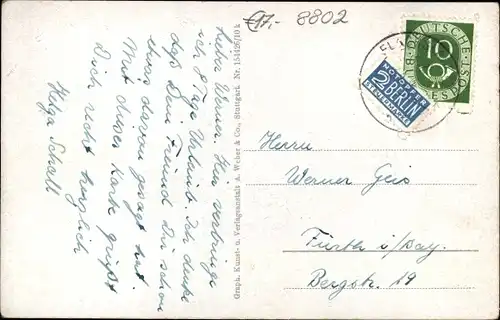 €17,- 8802
Lieber Werner. Hier verbringe
ich 8 Tage Urlaub. Ich denke
daß Dein Freund Dir schon
etwas davon gesagt hat.
Mit dieser Karte grüßt
Dich recht herzlich
Helga Schall
Graph. Kunst- u. Verlagsanstalt A. Weber & Co., Stuttgart. Nr. 154426/10 k
DEUTSCHE BUNDESPOST
10
NOTOPFER
2 BERLIN
STEUERMARKE
Herrn
Werner Geis
Fürth i/Bay.
Bergstr. 19